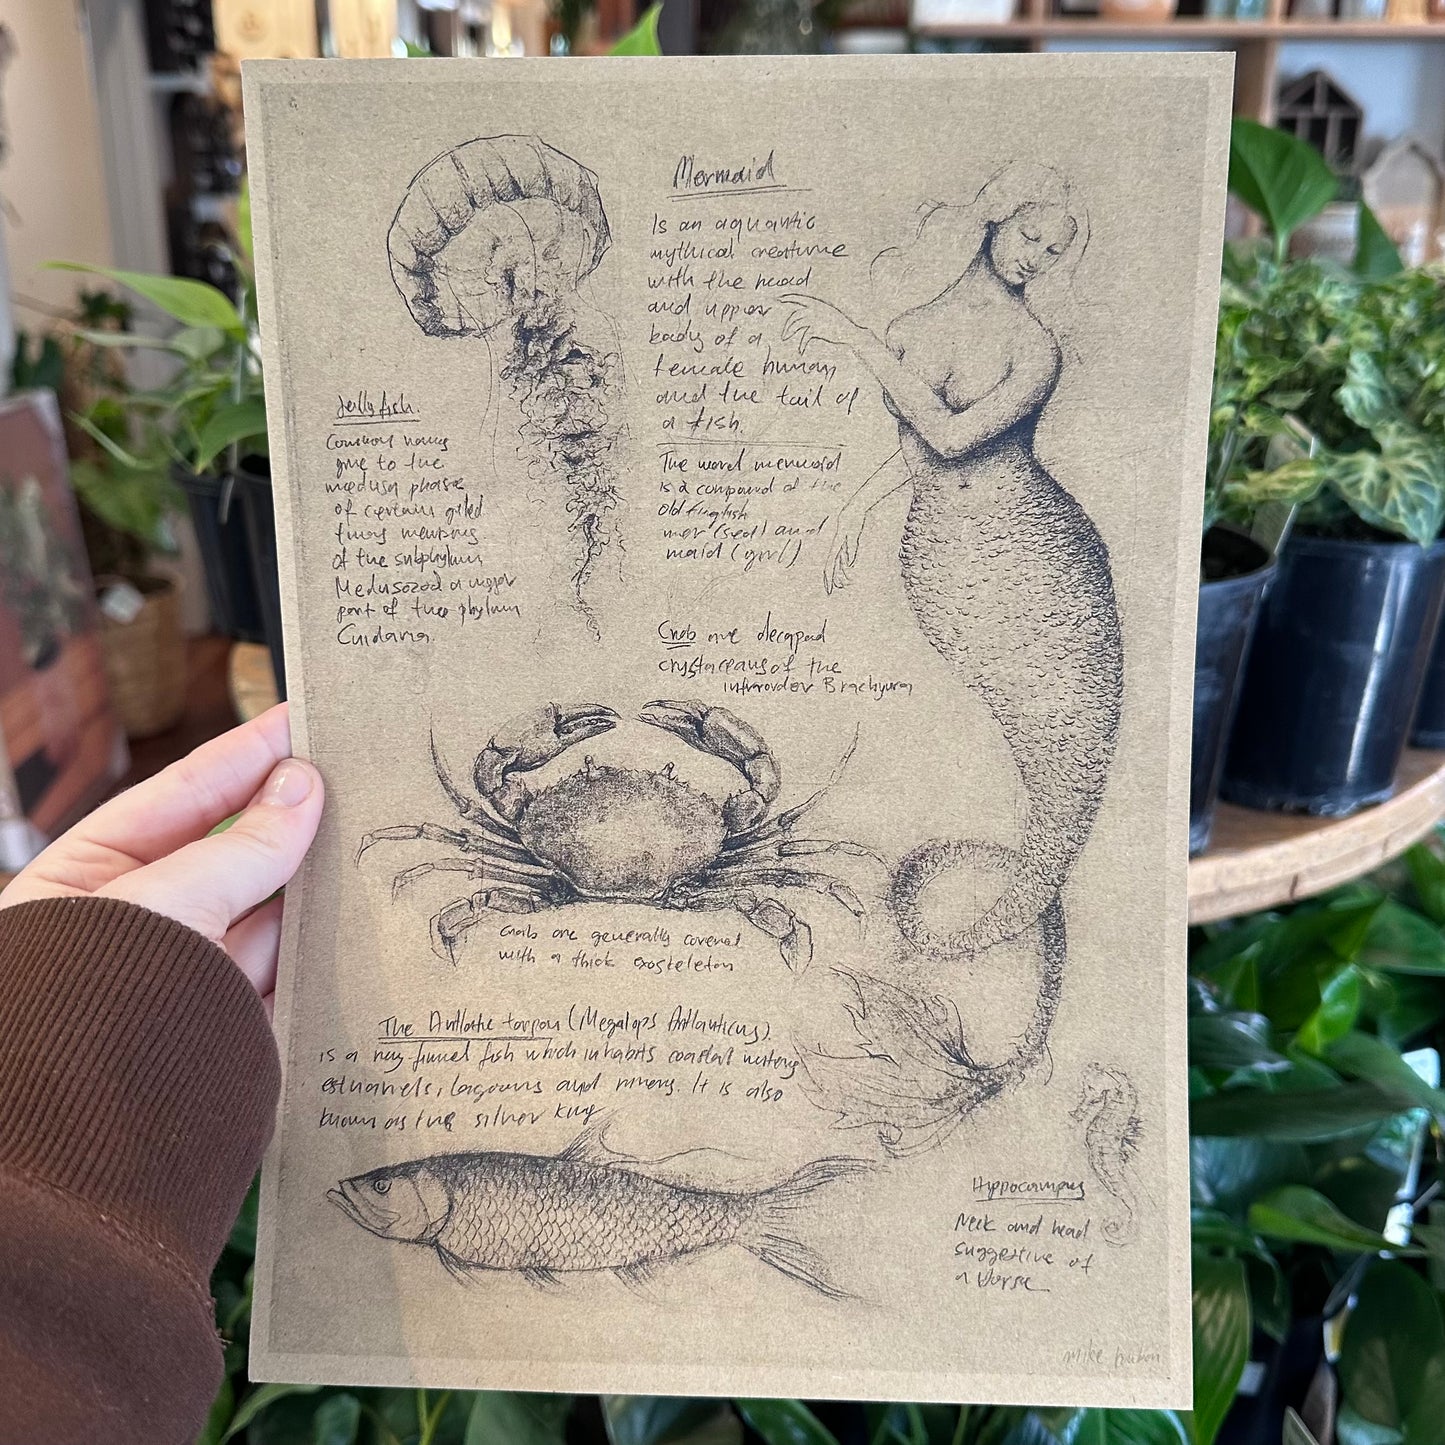 Mermaid
Is an aquantic
mythical creature
with the head
and upper
body of a
female human
and the tail of
a fish.
The word mermaid
is a compound of the
Old English
mer (sea) and
maid (girl)
Jellyfish.
Common name
give to the
medusa phase
of certain
of the subphylum
Medusozoa a major
part of the phylum
Cnidaria.
Crab are decapod
crystaceans of the
infraorder Brachyura
Crab are generally covered
with a thick exoskeleton
The Antlatic tarpon (Megalops Atlanticus).
is a ray-finned fish which inhabits coastal waters
lagoons and rivers. It is also
known as the silver king
Hippocampus
Neck and head
suggestive of
a Horse
mike